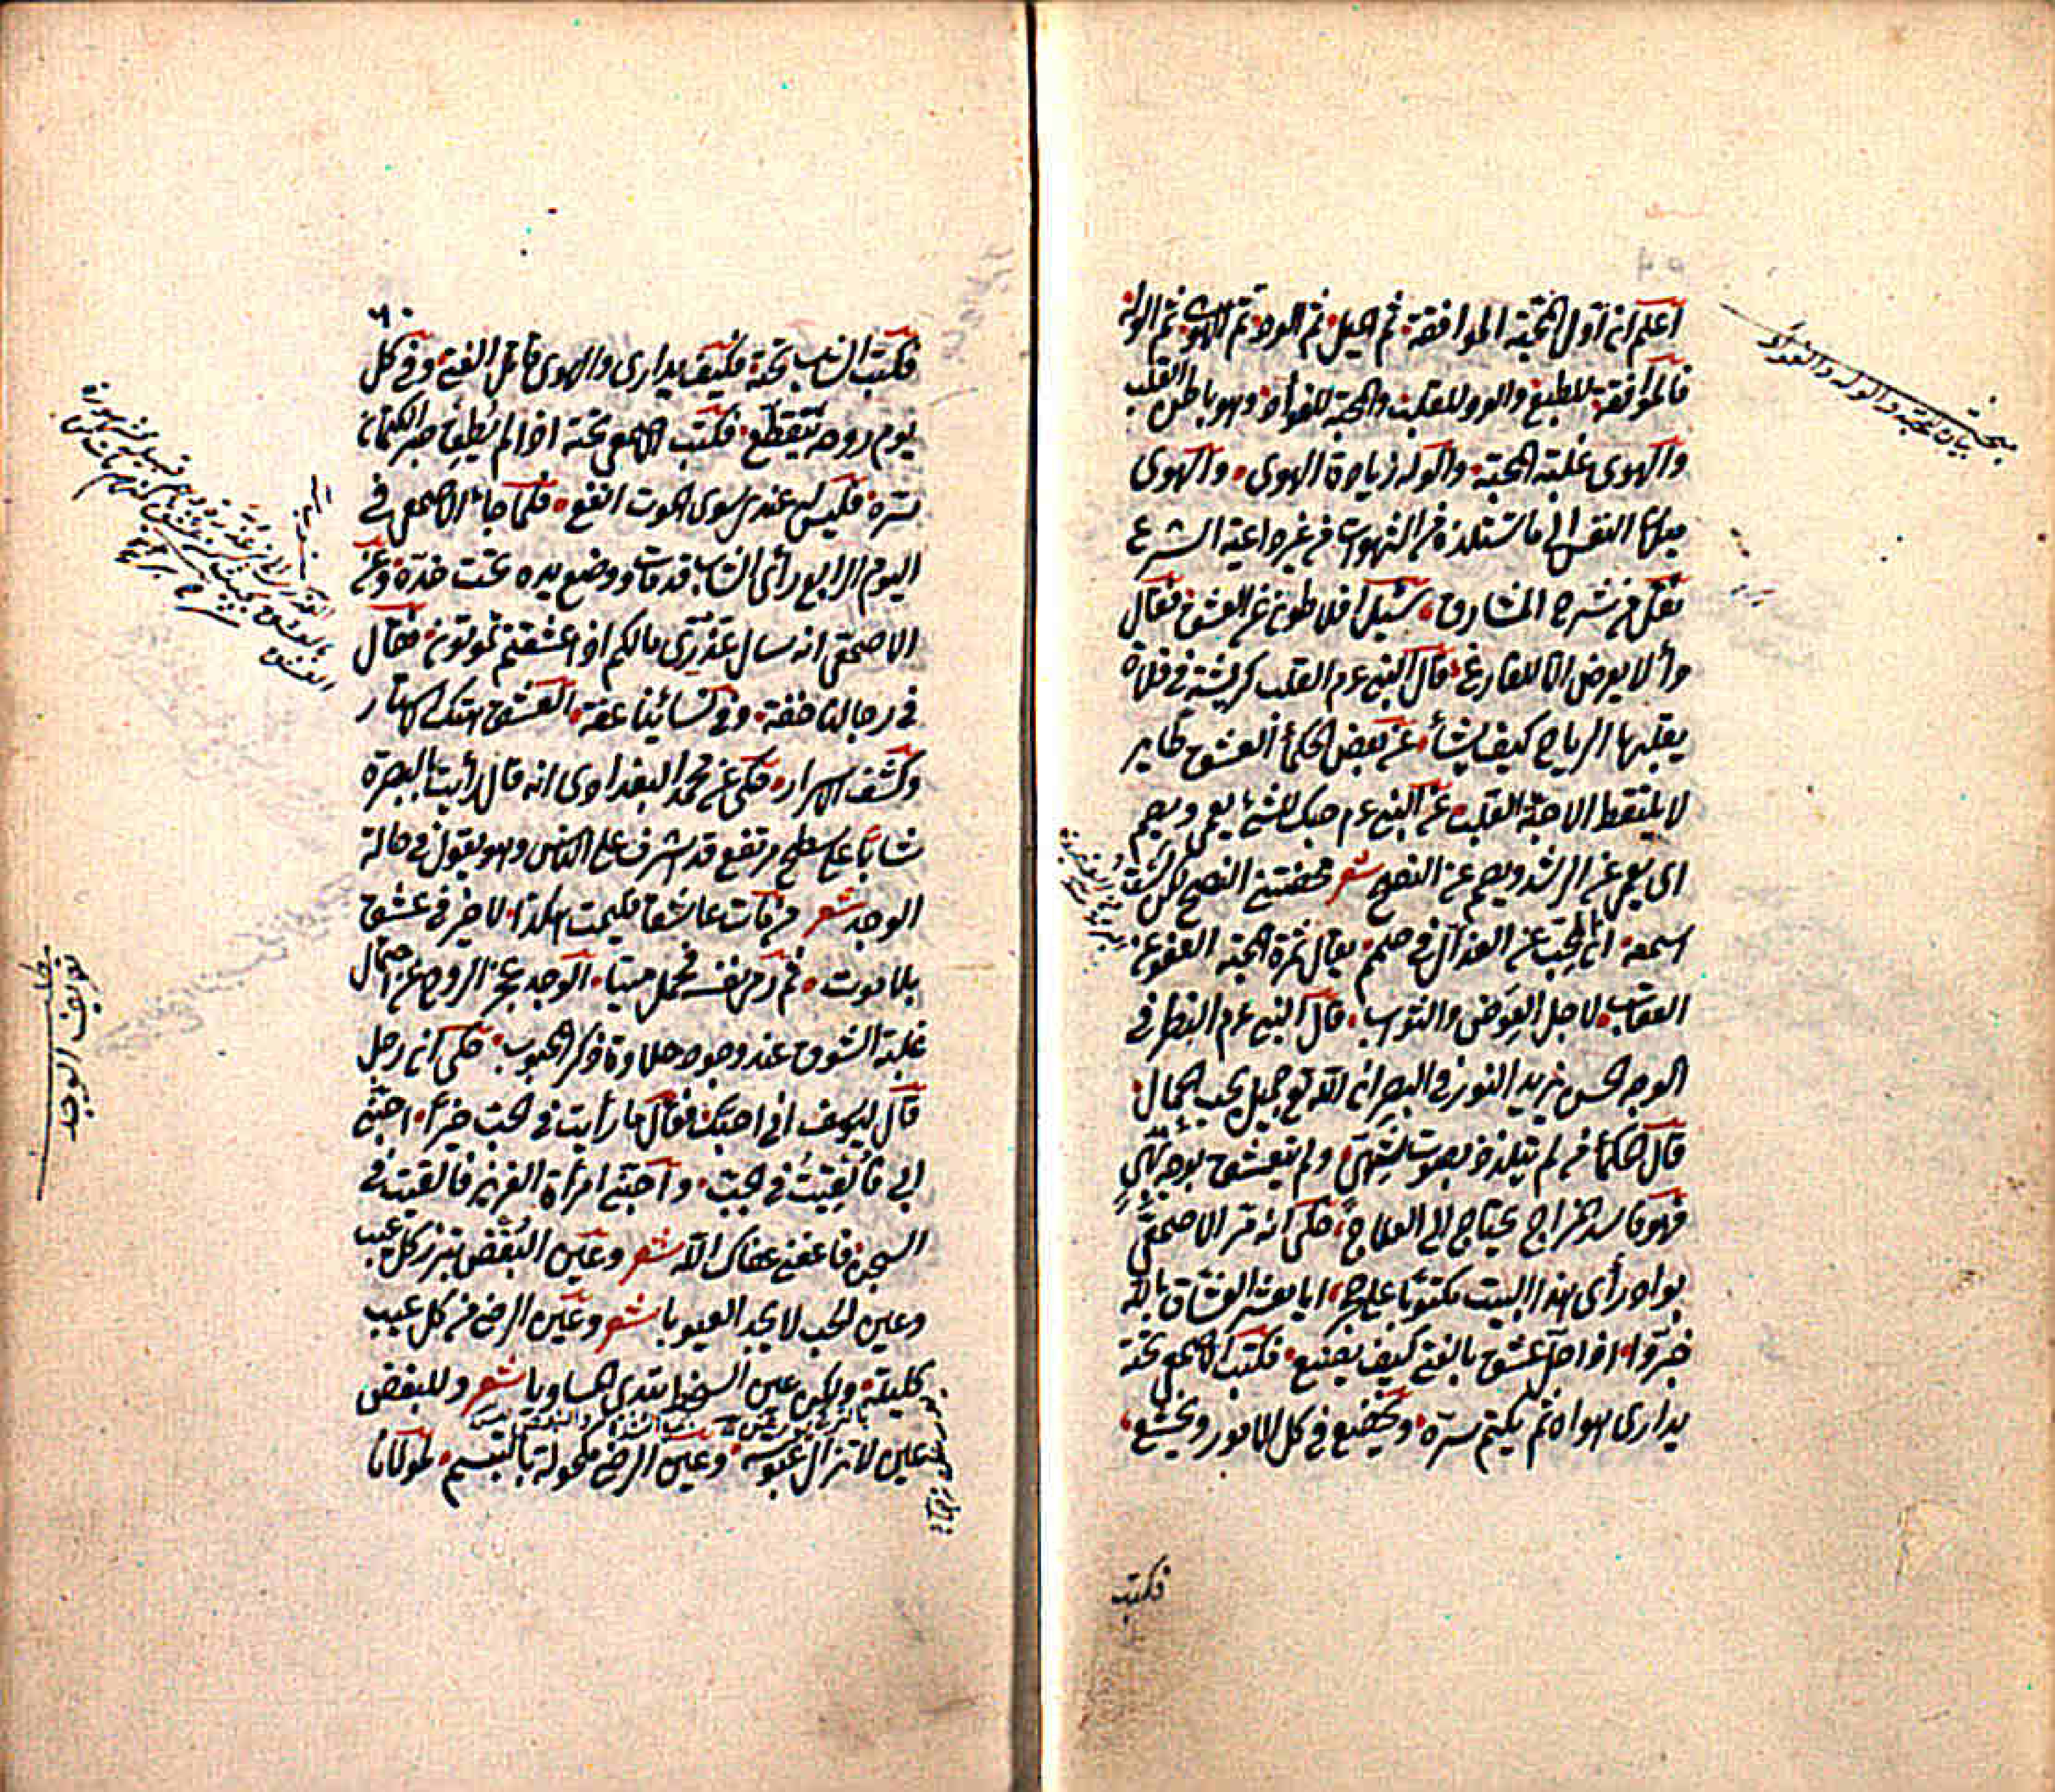 اعلم ان اول المحبة الموافقة ثم الميل ثم الود ثم الهوى ثم الوله
فالموافقة للطبع والود للقلب والمحبة للفؤاد وهو باطن القلب
والهوى غلبة المحبة والوله زيادة الهوى والهوى
ميلان النفس الى ما تستلذه من الشهوات من غير داعية الشرع
نقل من شرح المشارق سئل افلاطون عن العشق فقال
داء لا يعرض الا للفارغ قال النبي عم القلب كريشة في فلاة
يقلبها الرياح كيف يشاء عن بعض الحكماء العشق طاير
لا يلتقط الا حبة القلب عن النبي عم حبك الشئ يعمي ويصم
اى يعمي عن الرشد ويصم عن النصح شعر محضتني النصح لكن لست
اسمعه ان المحب عن العذال في صمم يقال ثمرة المحبة العفو عن
العقاب لا جل العوض والثواب قال النبي عم النظر في
الوجه الحسن يزيد النور في البصر ان الله تع جميل يحب الجمال
قال الحكماء من لم يتلذذ بصوت شهي ولم يتعشق بوجه بهي
فهو فاسد المزاج يحتاج الى العلاج حكى انه مر الاصمعي
بواد رأى هذا البيت مكتوبا على حجر ايا معشر العشاق بالله
خبروا اذا حل عشق بالفتى كيف يصنع فكتب الاصمعي تحته
يدارى هواه ثم يكتم سره ويخضع في كل الامور ويخشع
فكتب
٦٠
فكتب الشاب تحته فكيف يدارى والهوى قاتل الفتى وفي كل
يوم روحه تتقطع فكتب الاصمعي تحته اذا لم يطق صبرا لكتمان
سره فليس له عندى سوى الموت انفع فلما جاء الاصمعي في
اليوم الرابع رأى الشاب قد مات ووضع يده تحت خده وعن
الاصمعي انه سال عذرى ما لكم اذا عشقتم تموتون فقال
في رجالنا خفة وفي نسائنا عفة العشق هتك الاستار
وكشف الاسرار حكي عن محمد البغدادى انه قال رأيت بالبصرة
شابا على سطح مرتفع قد اشرف على الناس وهو يقول في حالة
الوجد شعر من مات عاشقا فليمت هكذا لا خير في عشق
بلا موت ثم رمى نفسه فحمل ميتا الوجد عجز الروح عن احتمال
غلبة الشوق عند وجود حلاوة ذكر المحبوب حكى ان رجل
قال ليوسف اني احبك فقال ما رأيت في الحب خيرا احبني
ابي فألقيت في الجب واحبتني امرأة العزيز فالقيت في
السجن فاعفني عفاك الله شعر وعين البغض تبرز كل عيب
وعين الحب لا يجد العيوبا شعر وعين الرضى من كل عيب
كليلة ولكن عين السخط تبدى المساويا شعر وللبغض
عين لا تزال عبوسة وعين الرضى مكحولة بالتبسم لمولانا
تعريف الوجد